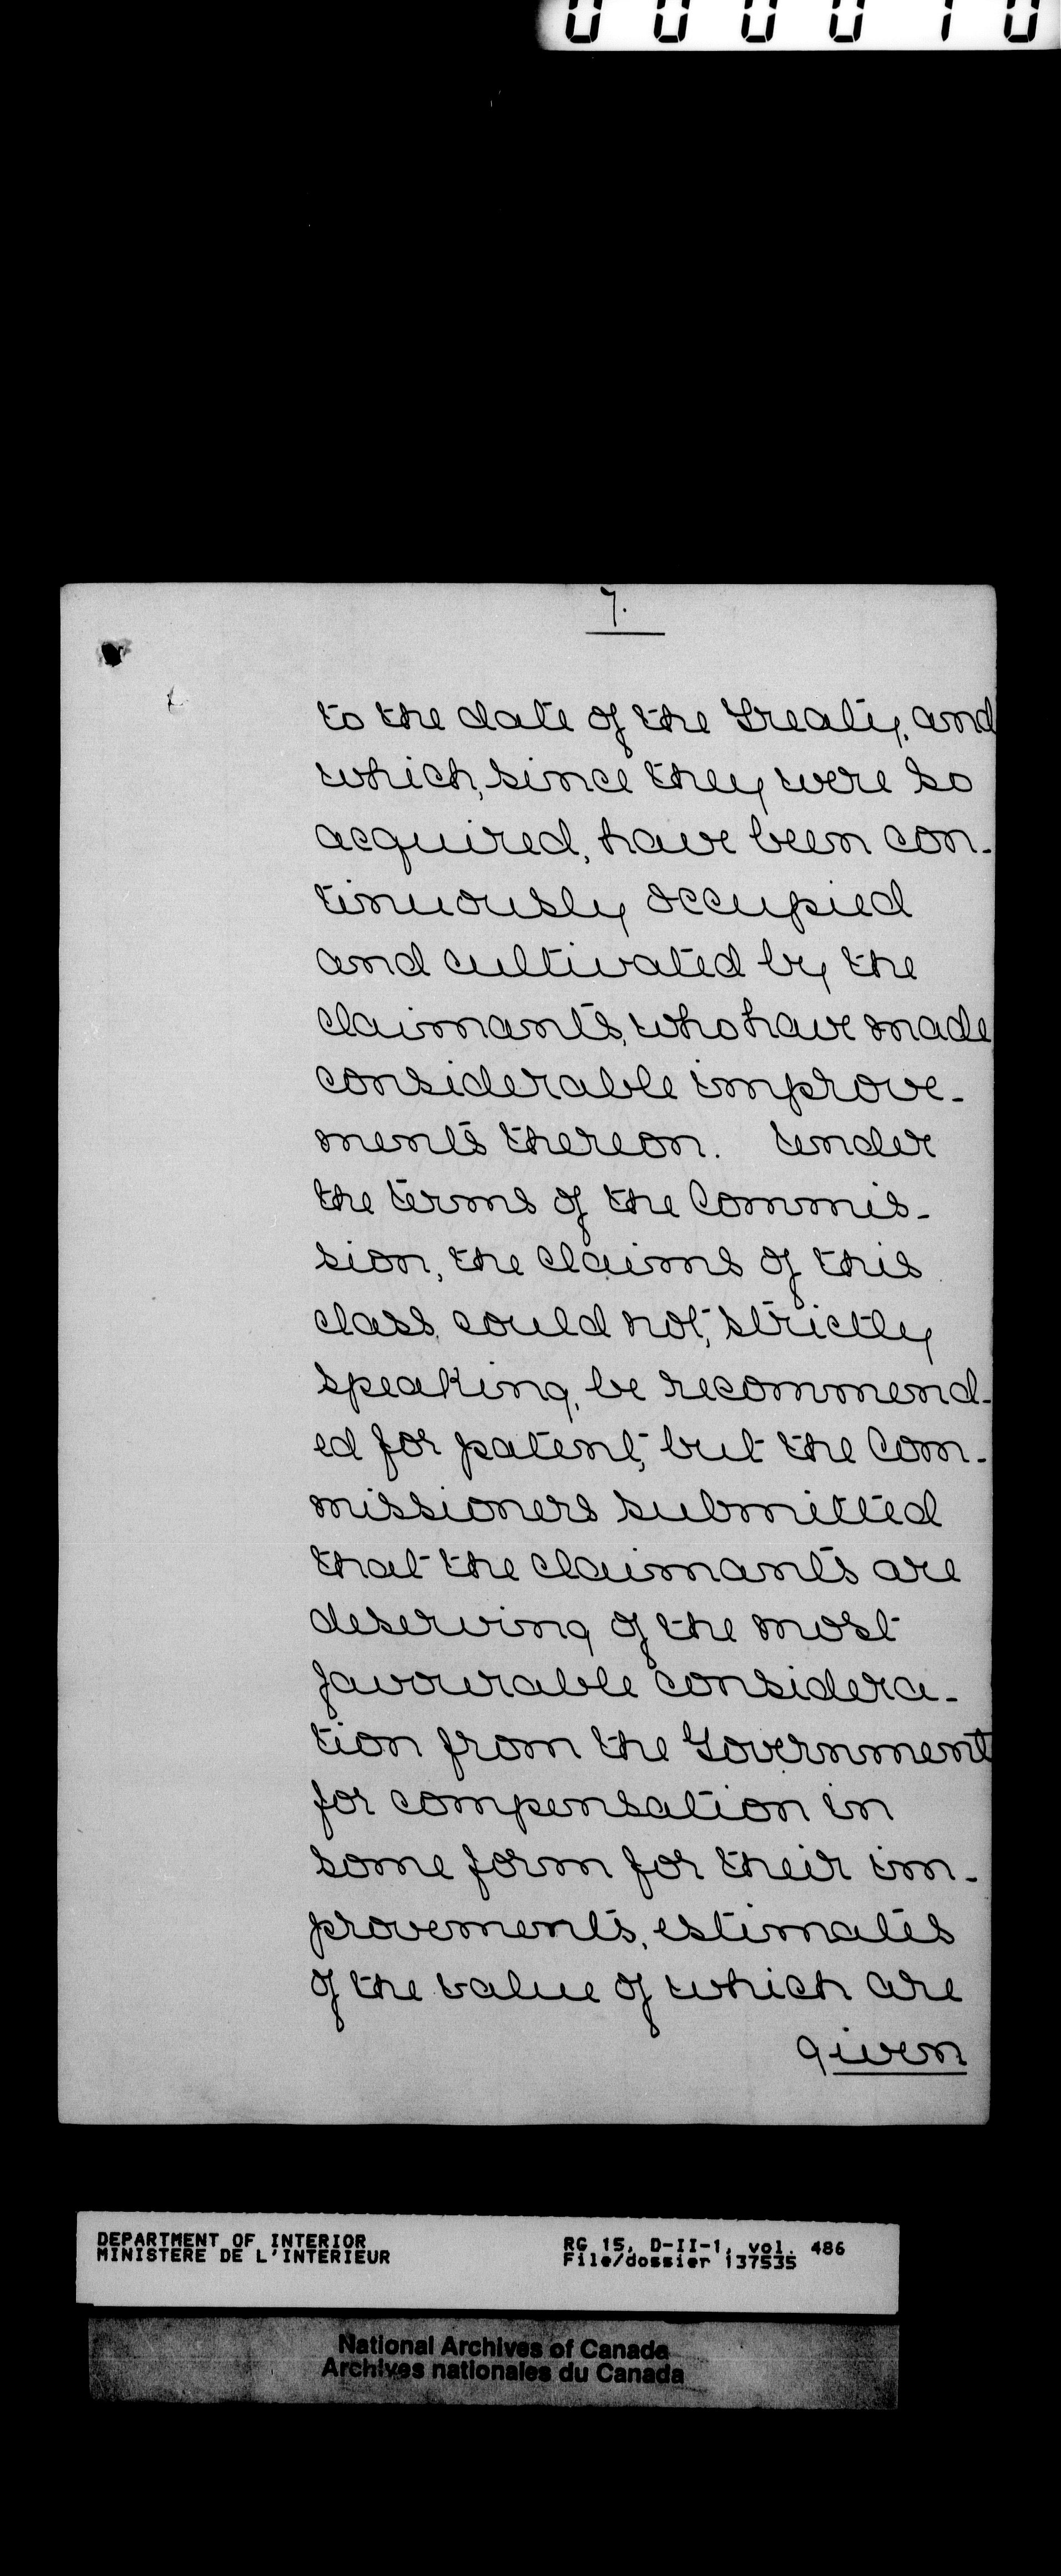 000010
7.
to the date of the Treaty, and
which, since they were so
acquired, have been con-
tinuously occupied
and cultivated by the
claimants, who have made
considerable improve-
ments thereon. Under
the terms of the Commis-
sion, the claims of this
class could not, strictly
speaking, be recommend-
ed for patent, but the Com-
missioners submitted
that the claimants are
deserving of the most
favourable considera-
tion from the Government
for compensation in
some form for their im-
provements, estimates
of the value of which are
given
DEPARTMENT OF INTERIOR RG 15, D-II-1, vol. 486
MINISTERE DE L'INTERIEUR File/dossier 137535
National Archives of Canada
Archives nationales du Canada